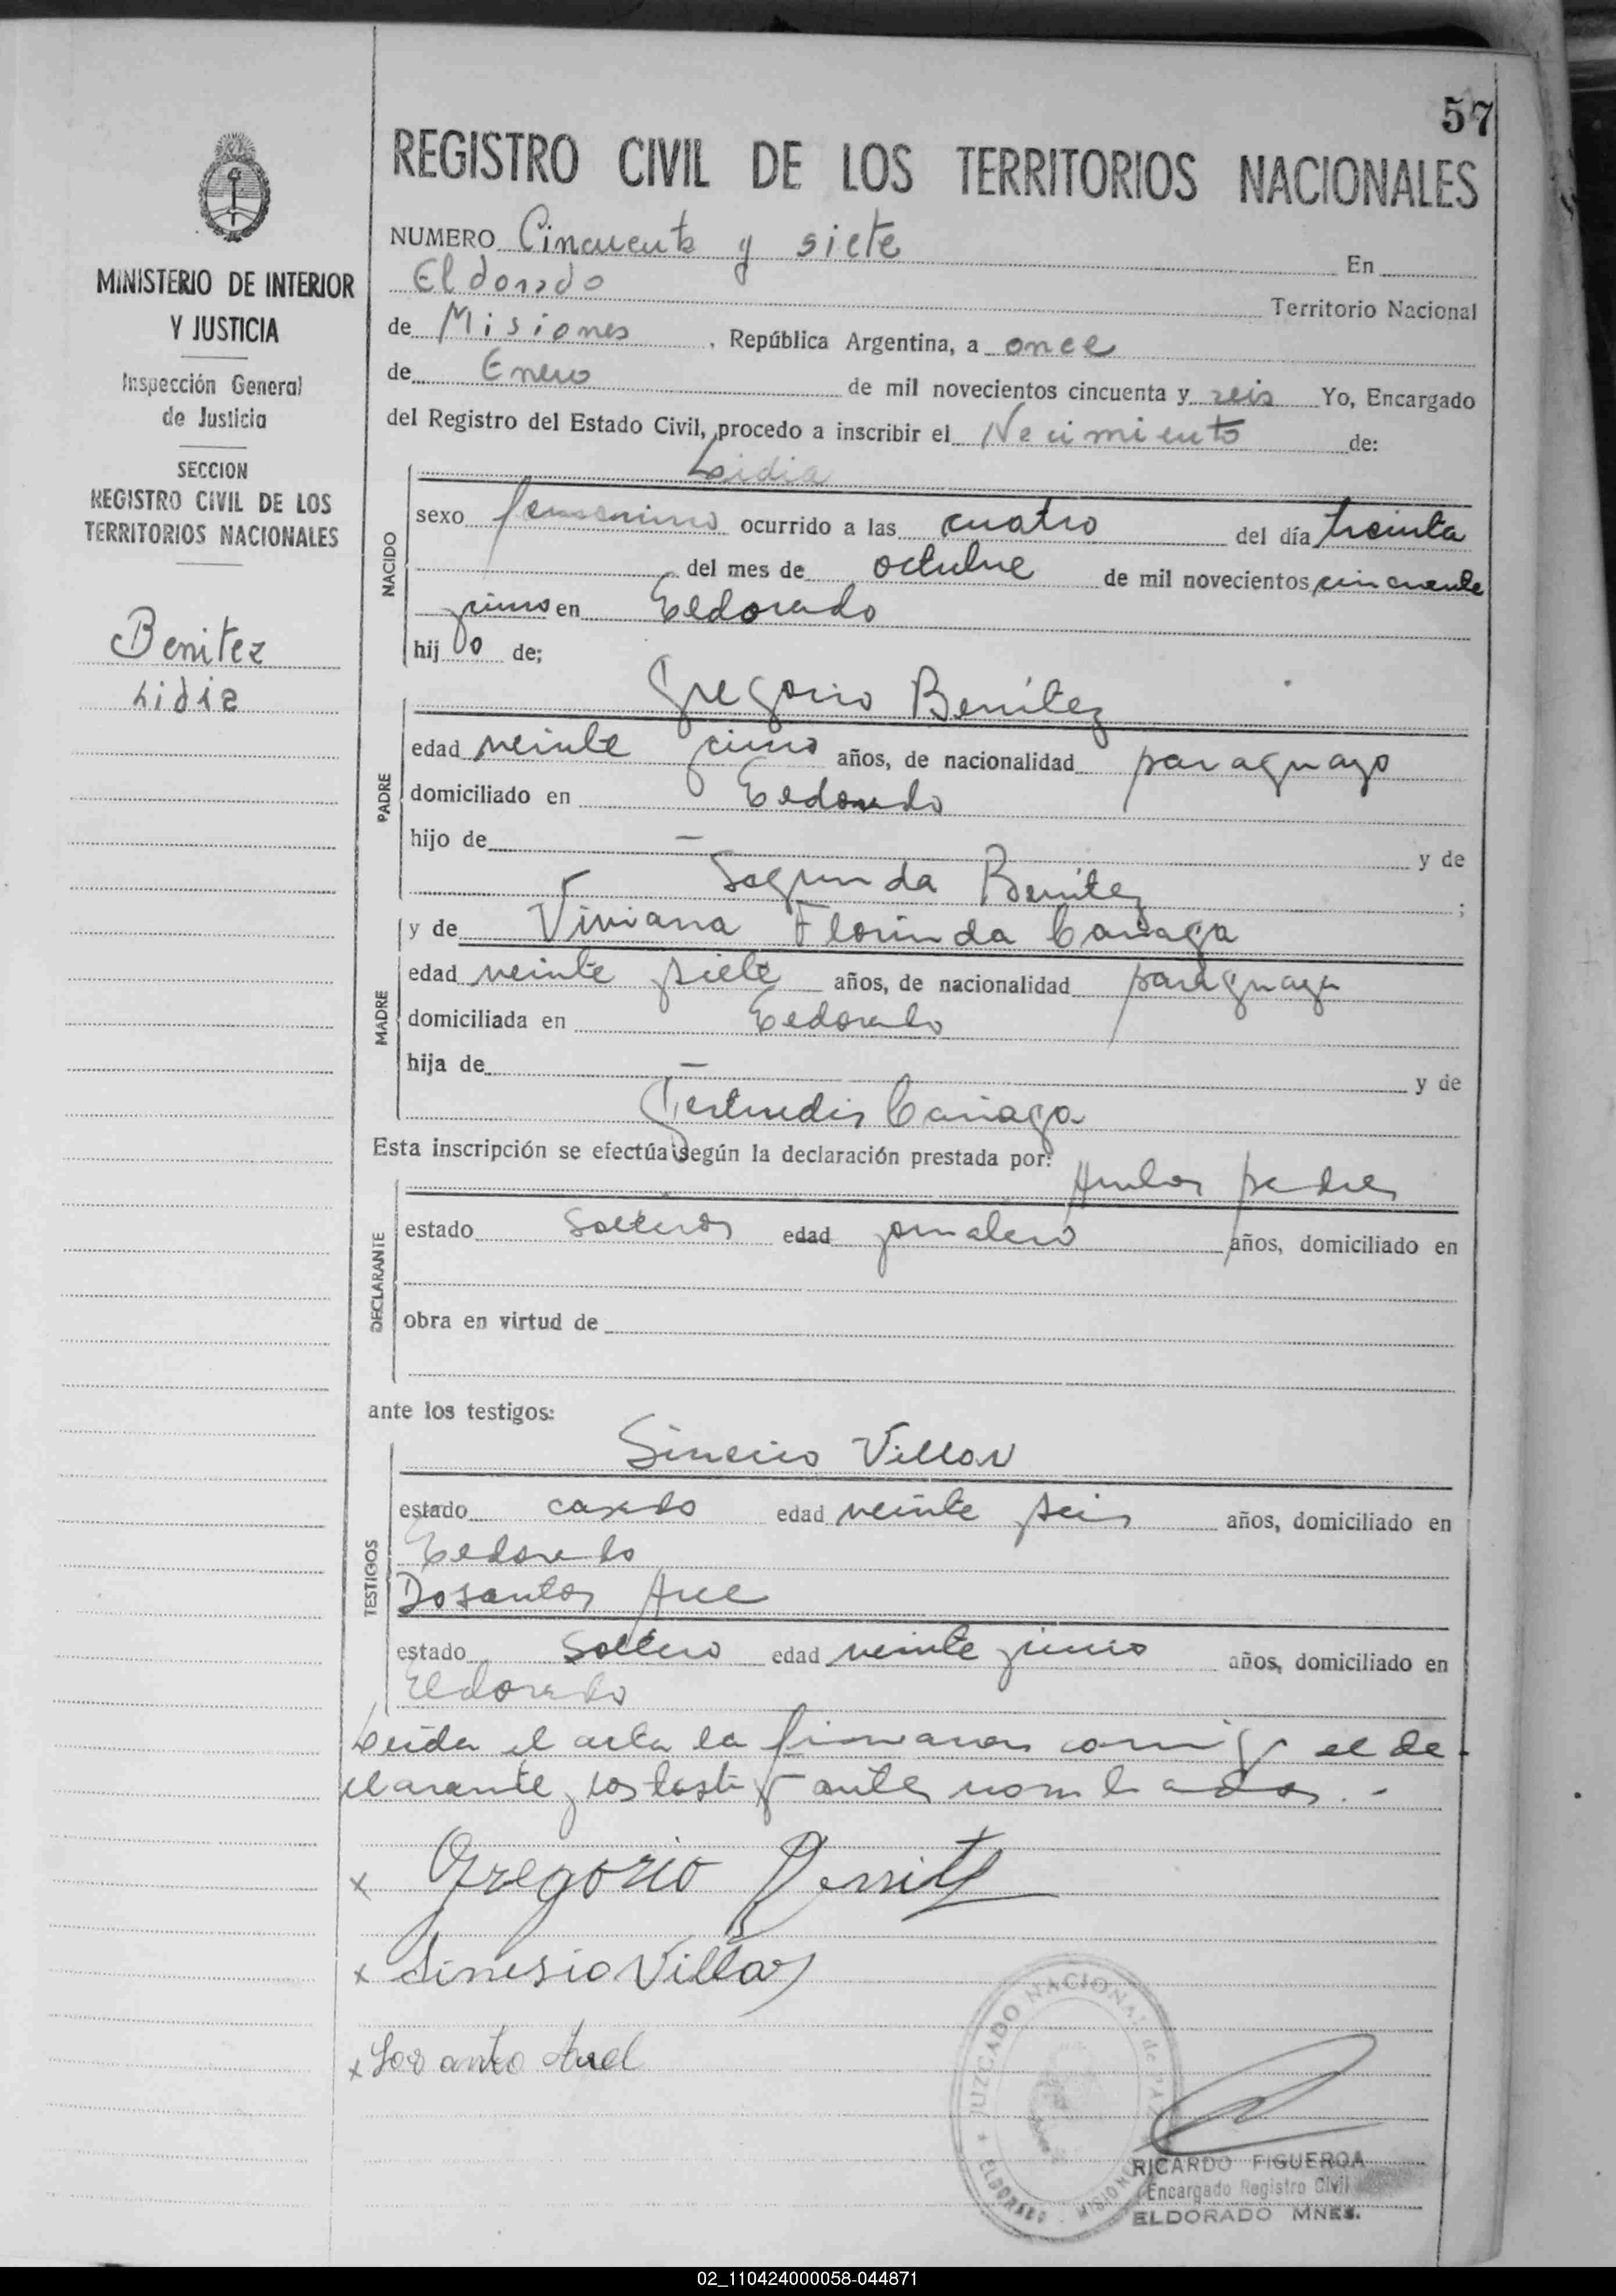 57
REGISTRO CIVIL DE LOS TERRITORIOS NACIONALES
MINISTERIO DE INTERIOR
Y JUSTICIA
Inspección General
de Justicia
SECCION
REGISTRO CIVIL DE LOS
TERRITORIOS NACIONALES
Benitez
Lidia
NUMERO Cincuenta y siete En
Eldorado Territorio Nacional
de Misiones, República Argentina, a once
de Enero de mil novecientos cincuenta y seis Yo, Encargado
del Registro del Estado Civil, procedo a inscribir el Necimiento de:
Lidia
NACIDO
sexo femenino ocurrido a las cuatro del día treinta
del mes de octubre de mil novecientos cincuenta
y cinco en Eldorado
hij o de;
PADRE
Gregorio Benítez
edad veinte cinco años, de nacionalidad paraguayo
domiciliado en Eldorado
hijo de — y de
Segunda Benítez ;
y de Viviana Florinda Cariaga
MADRE
edad veinte siete años, de nacionalidad paraguaya
domiciliada en Eldorado
hija de — y de
Gertrudis Cariaga
Esta inscripción se efectúa según la declaración prestada por:
Ambos padres
DECLARANTE
estado solteros edad jornalero años, domiciliado en
obra en virtud de
ante los testigos:
TESTIGOS
Sinecio Villar
estado casado edad veinte seis años, domiciliado en
Eldorado
Dosantos
estado soltero edad veinte cinco años, domiciliado en
Eldorado
Leída el acta la firmaron conmigo el de-
clarante y los testig antes nombrados.-
x Gregorio Benitez
x Sinesio Villar
x
JUZGADO NACIONAL de PAZ
ELDORADO - MISIONES
RICARDO FIGUEROA
Encargado Registro Civil
ELDORADO MNES.
02_110424000058-044871